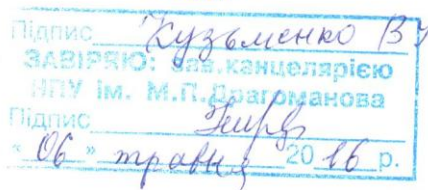 Підпис Кузьменко В
ЗАВІРЯЮ: зав.канцелярією
НПУ ім. М.П.Драгоманова
Підпис
«06» травня 2016 р.